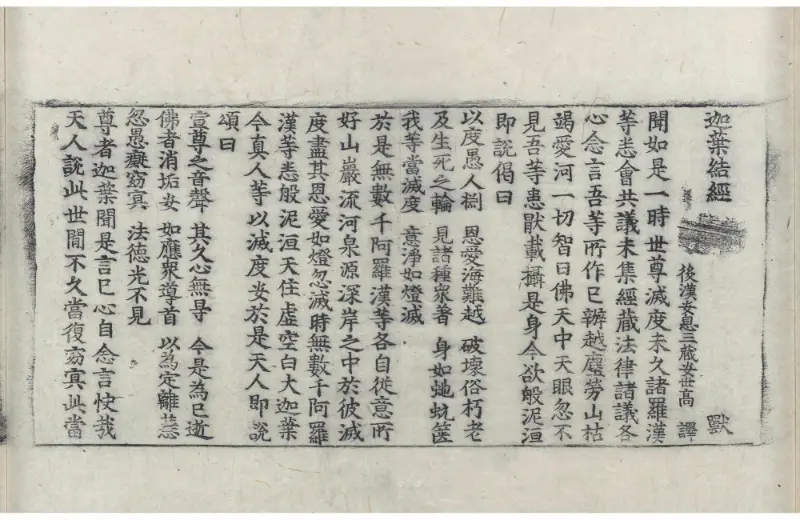 迦葉結經 獸
後漢安息三藏安世高 譯
聞如是一時世尊滅度未久諸羅漢
等悉會共議未集經蔵法律諸議各
心念言吾等所作已辦越塵勞山枯
竭愛河一切智日佛天中天眼忽不
見吾等患猒載攝是身今欲般泥洹
即說偈曰
以度愚人捌 恩愛海難越 破壞俗朽老
及生死之輪 見諸種衆著 身如虵蚖篋
我等當滅度 意淨如燈滅
於是無數千阿羅漢等各自従意所
好山巖流河泉源深岸之中於彼滅
度盡其恩愛如燈忽滅時無數千阿羅
漢等悉般泥洹天住虛空白大迦葉
今真人等以滅度矣於是天人即說
頌曰
宣尊之音聲 其久心無㝵 今是為已逝
佛者消垢安 如應衆導首 以為定離慧
忽愚癡窈冥 法德光不見
尊者迦葉聞是言已心自念言怏哉
天人說此世間不久當復窈冥此當